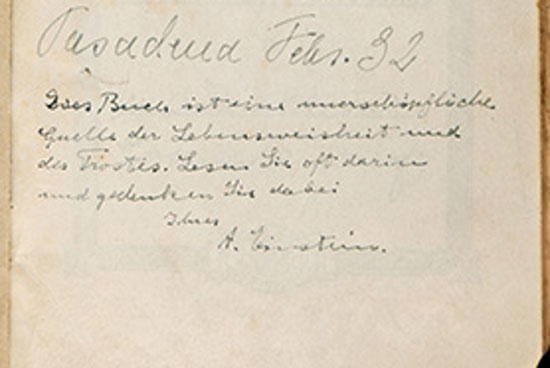 Pasadena Febr. 32
Das Buch ist eine unerschöpfliche
Quelle der Lebensweisheit und
des Trostes. Lesen Sie oft darin
und gedenken Sie dabei
Ihres
A. Einstein.